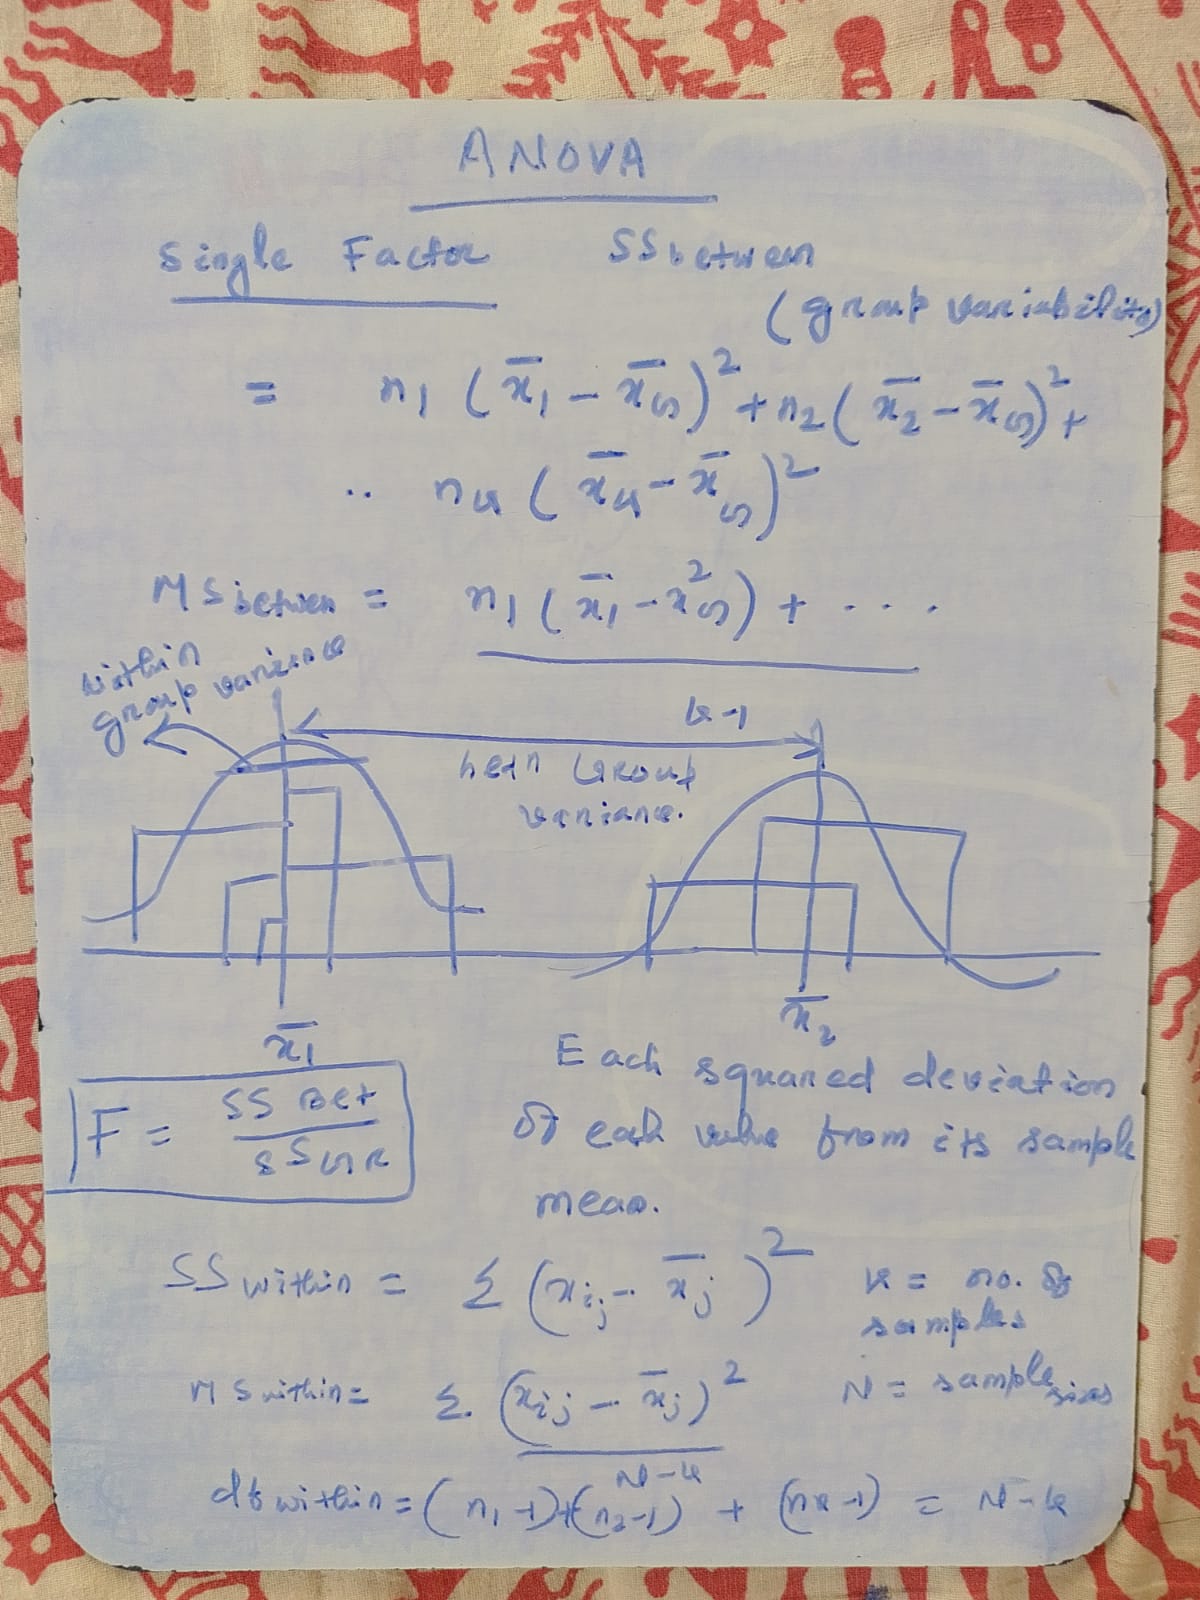 ANOVA
Single Factor SS between
(group variability)
= n₁ (x̄₁ - x̄G)² + n₂ (x̄₂ - x̄G)² +
.. nk (x̄k - x̄G)²
MS between = n₁ (x̄₁ - x²G) + ....
k-1
within
group variance
betn Group
variance.
x̄₁
x̄₂
F = SS Bet / SS
Each squared deviation
of each value from its sample
mean.
SS within = Σ (xij - x̄j)²
k = no. of
samples
MS within = Σ (xij - x̄j)² / N-k
N = sample sizes
df within = (n₁-1)+(n₂-1) + (nk-1) = N-k